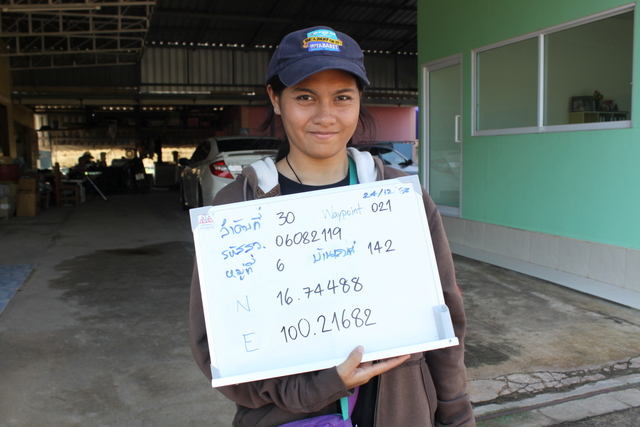 24/12/58
ลำดับที่ 30 Waypoint 021
รหัสรว. 06082119
หมู่ที่ 6 บ้านเลขที่ 142
N 16.74488
E 100.21682